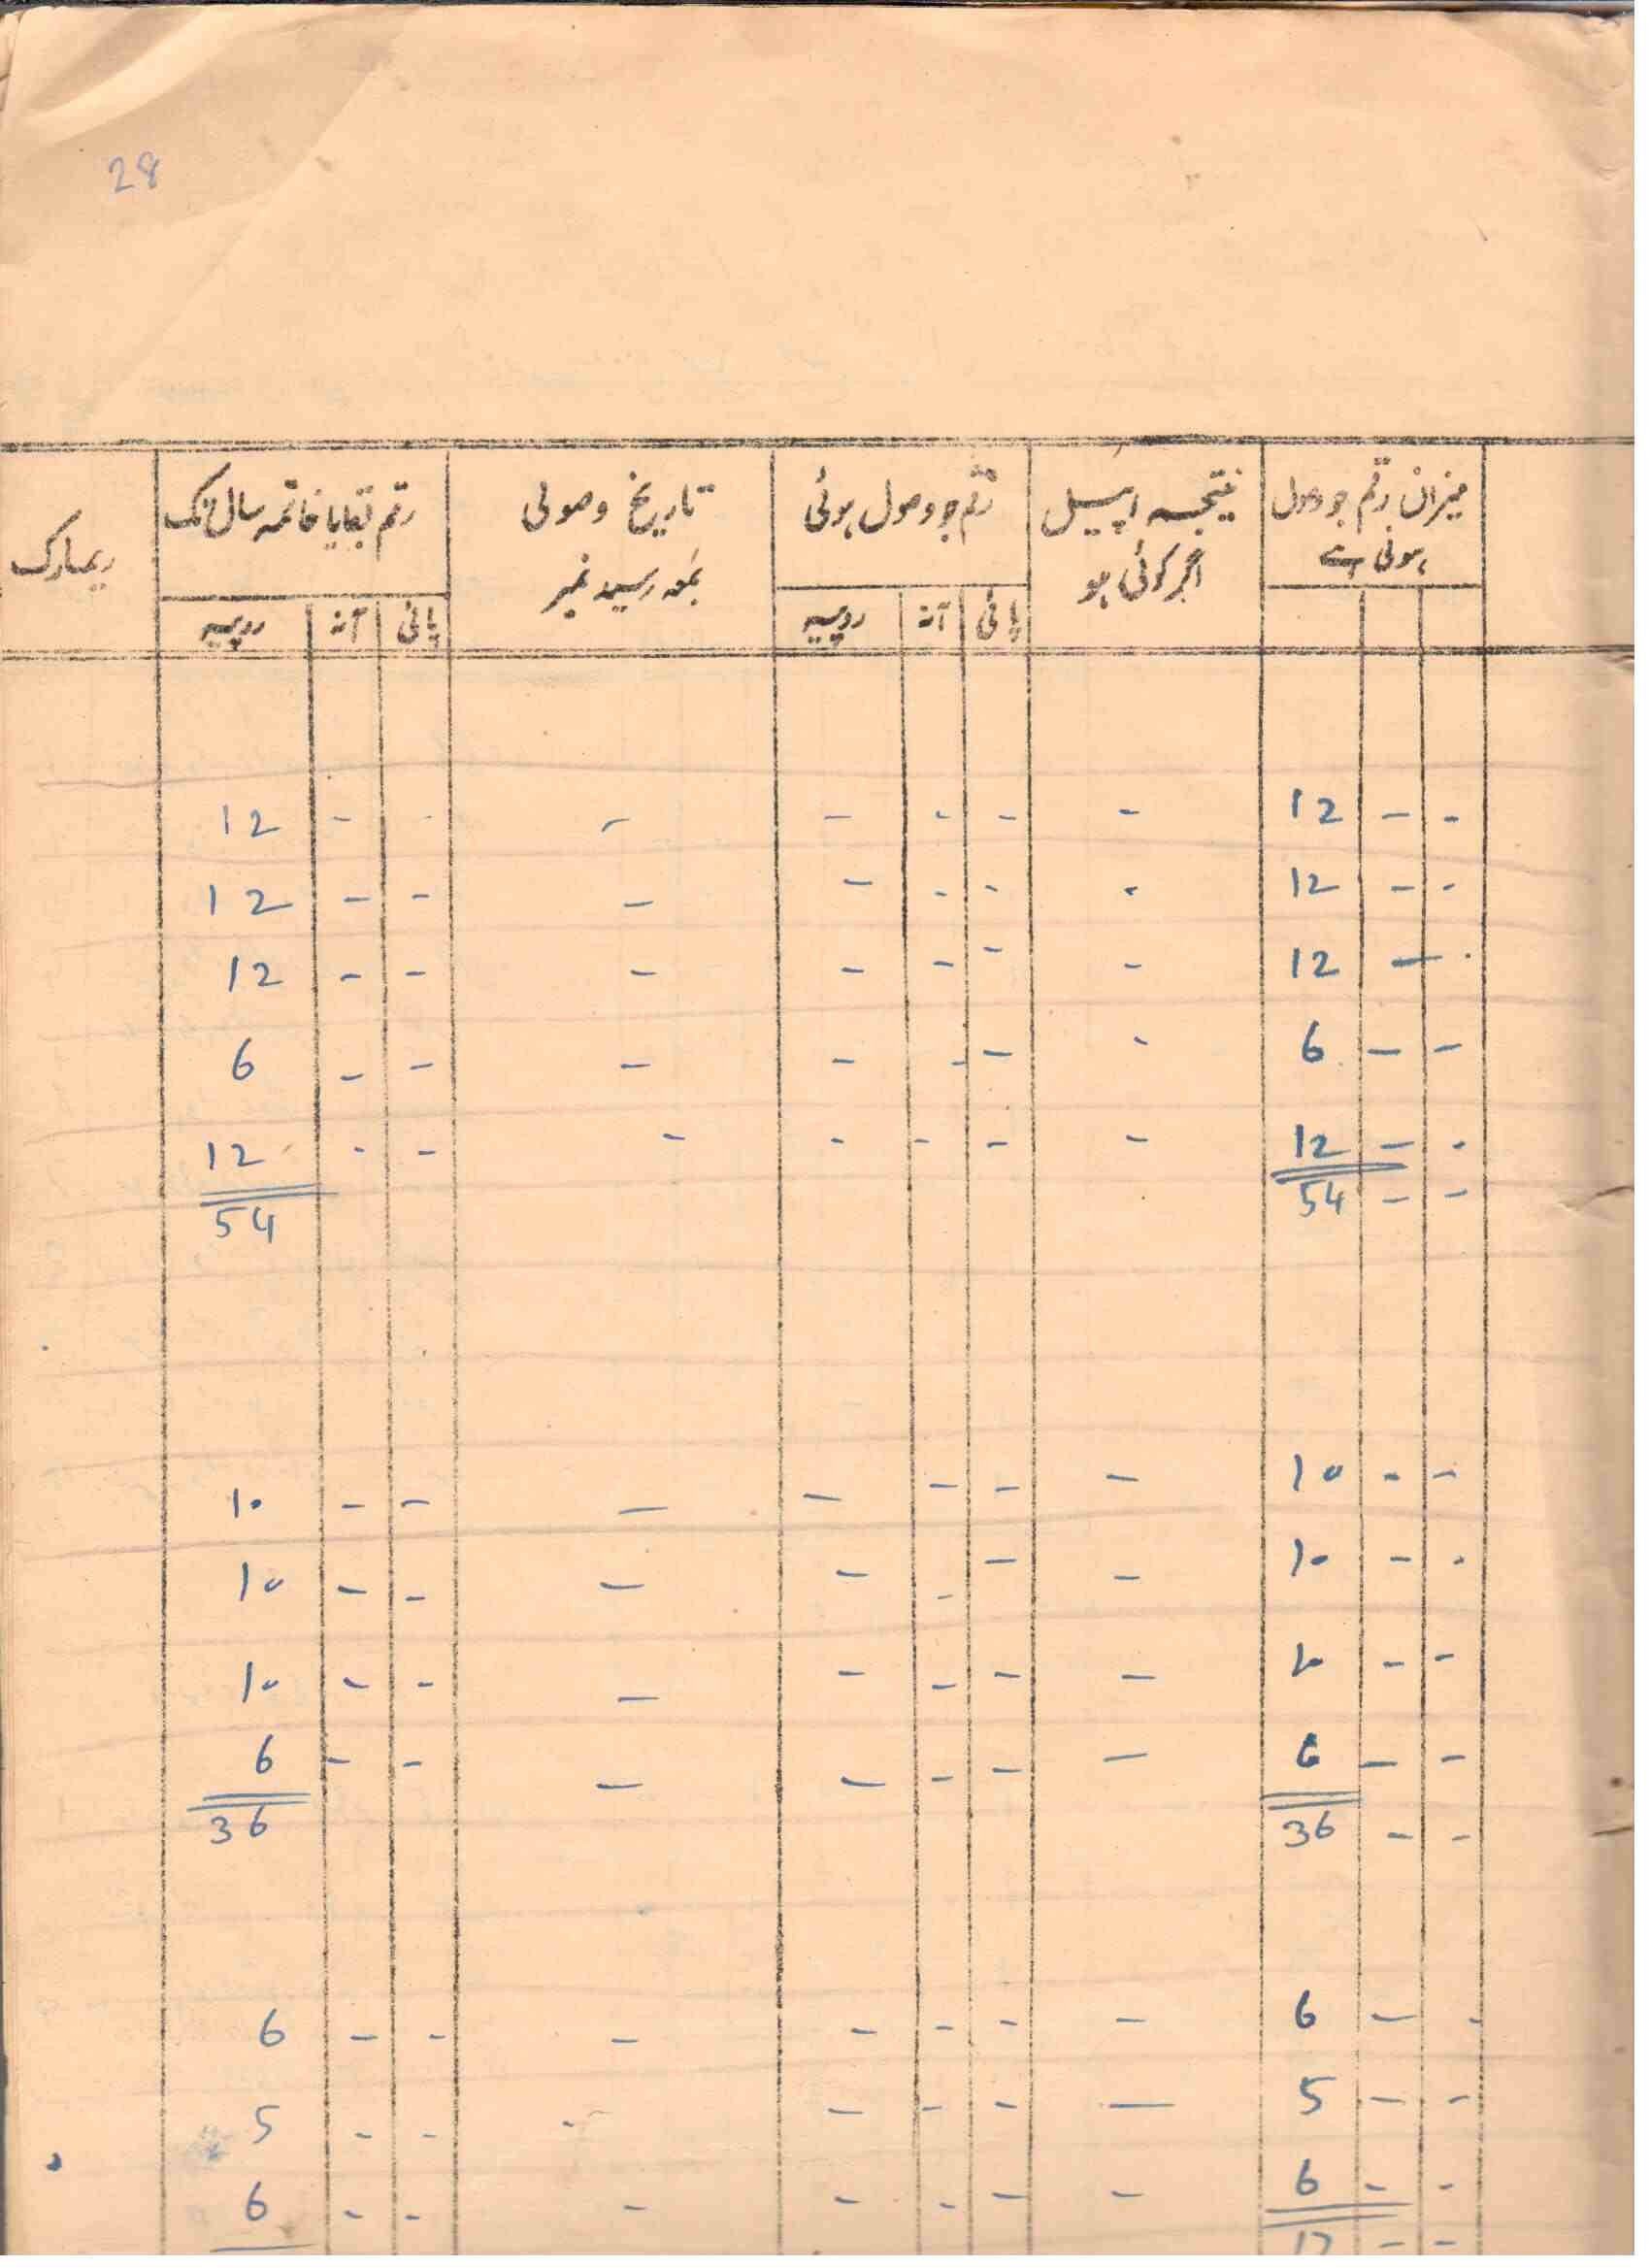 28
میزان رقم جو وصول نتیجہ اپیل رقم جو وصول ہوئی تاریخ وصولی رقم بقایا خاتمہ سال تک ریمارک
ہونی ہے اگر کوئی ہو بمعہ رسید نمبر
پائی آنہ روپیہ پائی آنہ روپیہ
12 - - - - - - - - - 12
12 - - - - - - - - - 12
12 - - - - - - - - - 12
6 - - - - - - - - - 6
12 - - - - - - - - - 12
54 - - 54
10 - - - - - - - - - 10
10 - - - - - - - - - 10
10 - - - - - - - - - 10
6 - - - - - - - - - 6
36 - - 36
6 - - - - - - - - - 6
5 - - - - - - - - - 5
6 - - - - - - - - - 6
17 - -